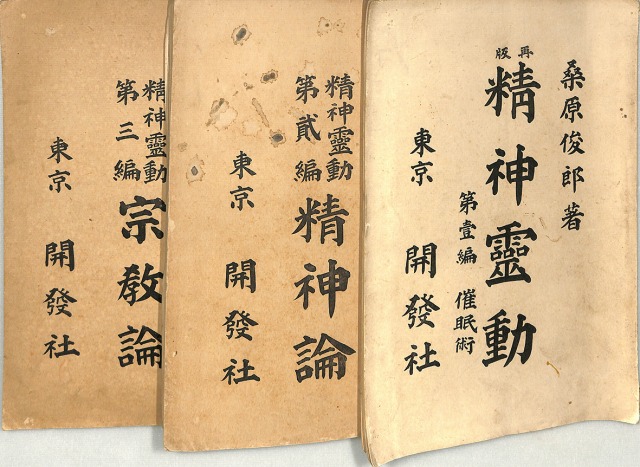 桑原俊郎著
再版
精神靈動
第壹編 催眠術
東京 開發社
精神靈動
第貳編
精神論
東京 開發社
精神靈動
第三編
宗教論
東京 開發社